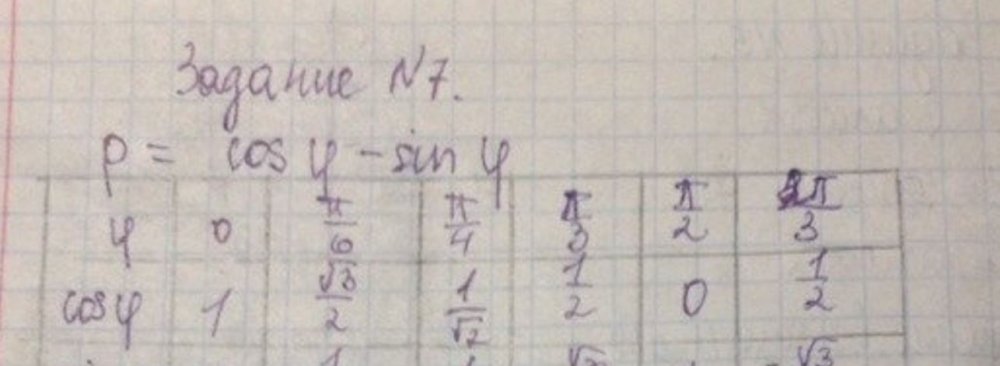 Задание N7.
ρ = cos φ - sin φ
φ 0 π/6 π/4 π/3 π/2 2π/3
cosφ 1 √3/2 1/√2 1/2 0 1/2